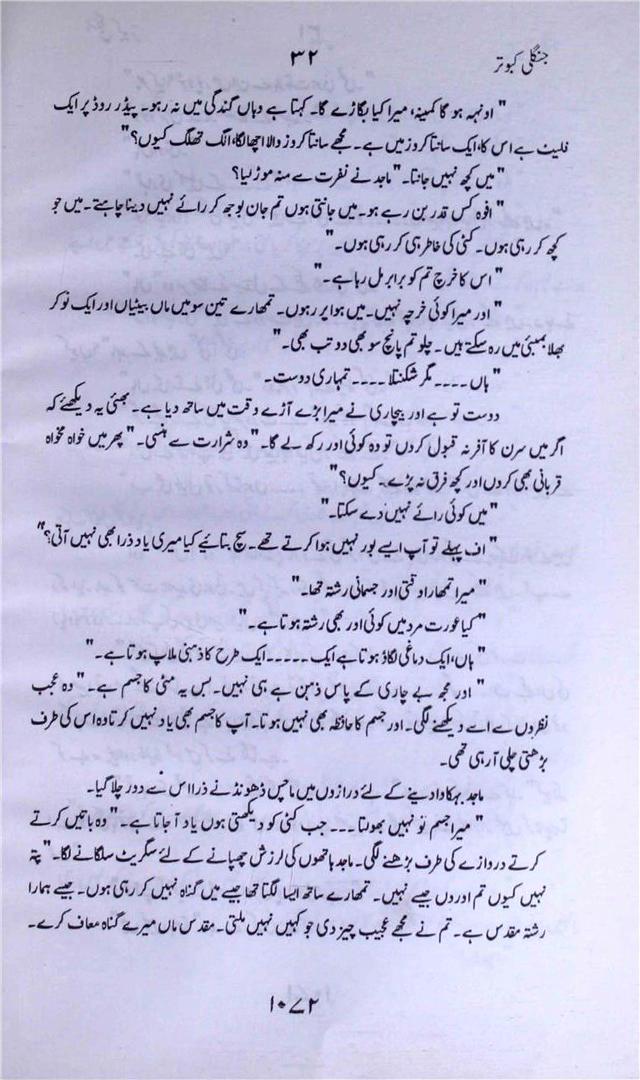 جنگلی کبوتر
۳۲
" اونہہ ہو گا کمینہ، میرا کیا بگاڑے گا۔ کہتا ہے وہاں گندگی میں نہ رہو۔ پیڈر روڈ پر ایک
فلیٹ ہے اس کا، ایک سانتا کروز میں ہے۔ مجھے سانتا کروز والا اچھا لگا، الگ تھلگ کیوں؟"
" میں کچھ نہیں جانتا۔" ماجد نے نفرت سے منہ موڑ لیا؟
" افوہ کس قدر بن رہے ہو۔ میں جانتی ہوں تم جان بوجھ کر رائے نہیں دینا چاہتے۔ میں جو
کچھ کر رہی ہوں۔ کنّی کی خاطر ہی کر رہی ہوں۔"
" اس کا خرچ تم کو برابر مل رہا ہے۔"
" اور میرا کوئی خرچہ نہیں۔ میں ہوا پر رہوں۔ تمھارے تین سو میں ماں بیٹیاں اور ایک نوکر
بھلا بمبئی میں رہ سکتے ہیں۔ چلو تم پانچ سو بھی دو تب بھی۔"
" ہاں ۔۔۔۔ مگر شکنتلا ۔۔۔۔ تمہاری دوست۔
دوست تو ہے اور بیچاری نے میرا بڑے آڑے وقت میں ساتھ دیا ہے۔ بھئی یہ دیکھئے کہ
اگر میں سرن کا آفر نہ قبول کروں تو وہ کوئی اور رکھ لے گا۔" وہ شرارت سے ہنسی۔ " پھر میں خواہ مخواہ
قربانی بھی کروں اور کچھ فرق نہ پڑے۔ کیوں؟"
" میں کوئی رائے نہیں دے سکتا۔"
" اف پہلے تو آپ ایسے بور نہیں ہوا کرتے تھے۔ سچ بتائیے کیا میری یاد ذرا بھی نہیں آتی؟"
" میرا تمھارا وقتی اور جسمانی رشتہ تھا۔"
" کیا عورت مرد میں کوئی اور بھی رشتہ ہوتا ہے۔"
" ہاں، ایک دماغی لگاؤ ہوتا ہے ایک ۔۔۔۔۔ ایک طرح کا ذہنی ملاپ ہوتا ہے۔"
" اور مجھ بے چاری کے پاس ذہن ہے ہی نہیں۔ بس یہ مٹی کا جسم ہے۔" وہ عجب
نظروں سے اسے دیکھنے لگی۔ اور جسم کا حافظہ بھی نہیں ہوتا۔ آپ کا جسم بھی یاد نہیں کرتا وہ اس کی طرف
بڑھتی چلی آ رہی تھی۔
ماجد بہکاوا دینے کے لئے درازوں میں ماچس ڈھونڈنے ذرا اس سے دور چلا گیا۔
" میرا جسم تو نہیں بھولتا ۔۔۔ جب کنّی کو دیکھتی ہوں یاد آ جاتا ہے۔" وہ باتیں کرتے
کرتے دروازے کی طرف بڑھنے لگی۔ ماجد ہاتھوں کی لرزش چھپانے کے لئے سگریٹ سلگانے لگا۔" پتہ
نہیں کیوں تم اوروں جیسے نہیں۔ تمھارے ساتھ ایسا لگتا تھا جیسے میں گناہ نہیں کر رہی ہوں۔ جیسے ہمارا
رشتہ مقدس ہے۔ تم نے مجھے عجیب چیز دی جو کہیں نہیں ملتی۔ مقدس ماں میرے گناہ معاف کرے۔
۱۰۷۲